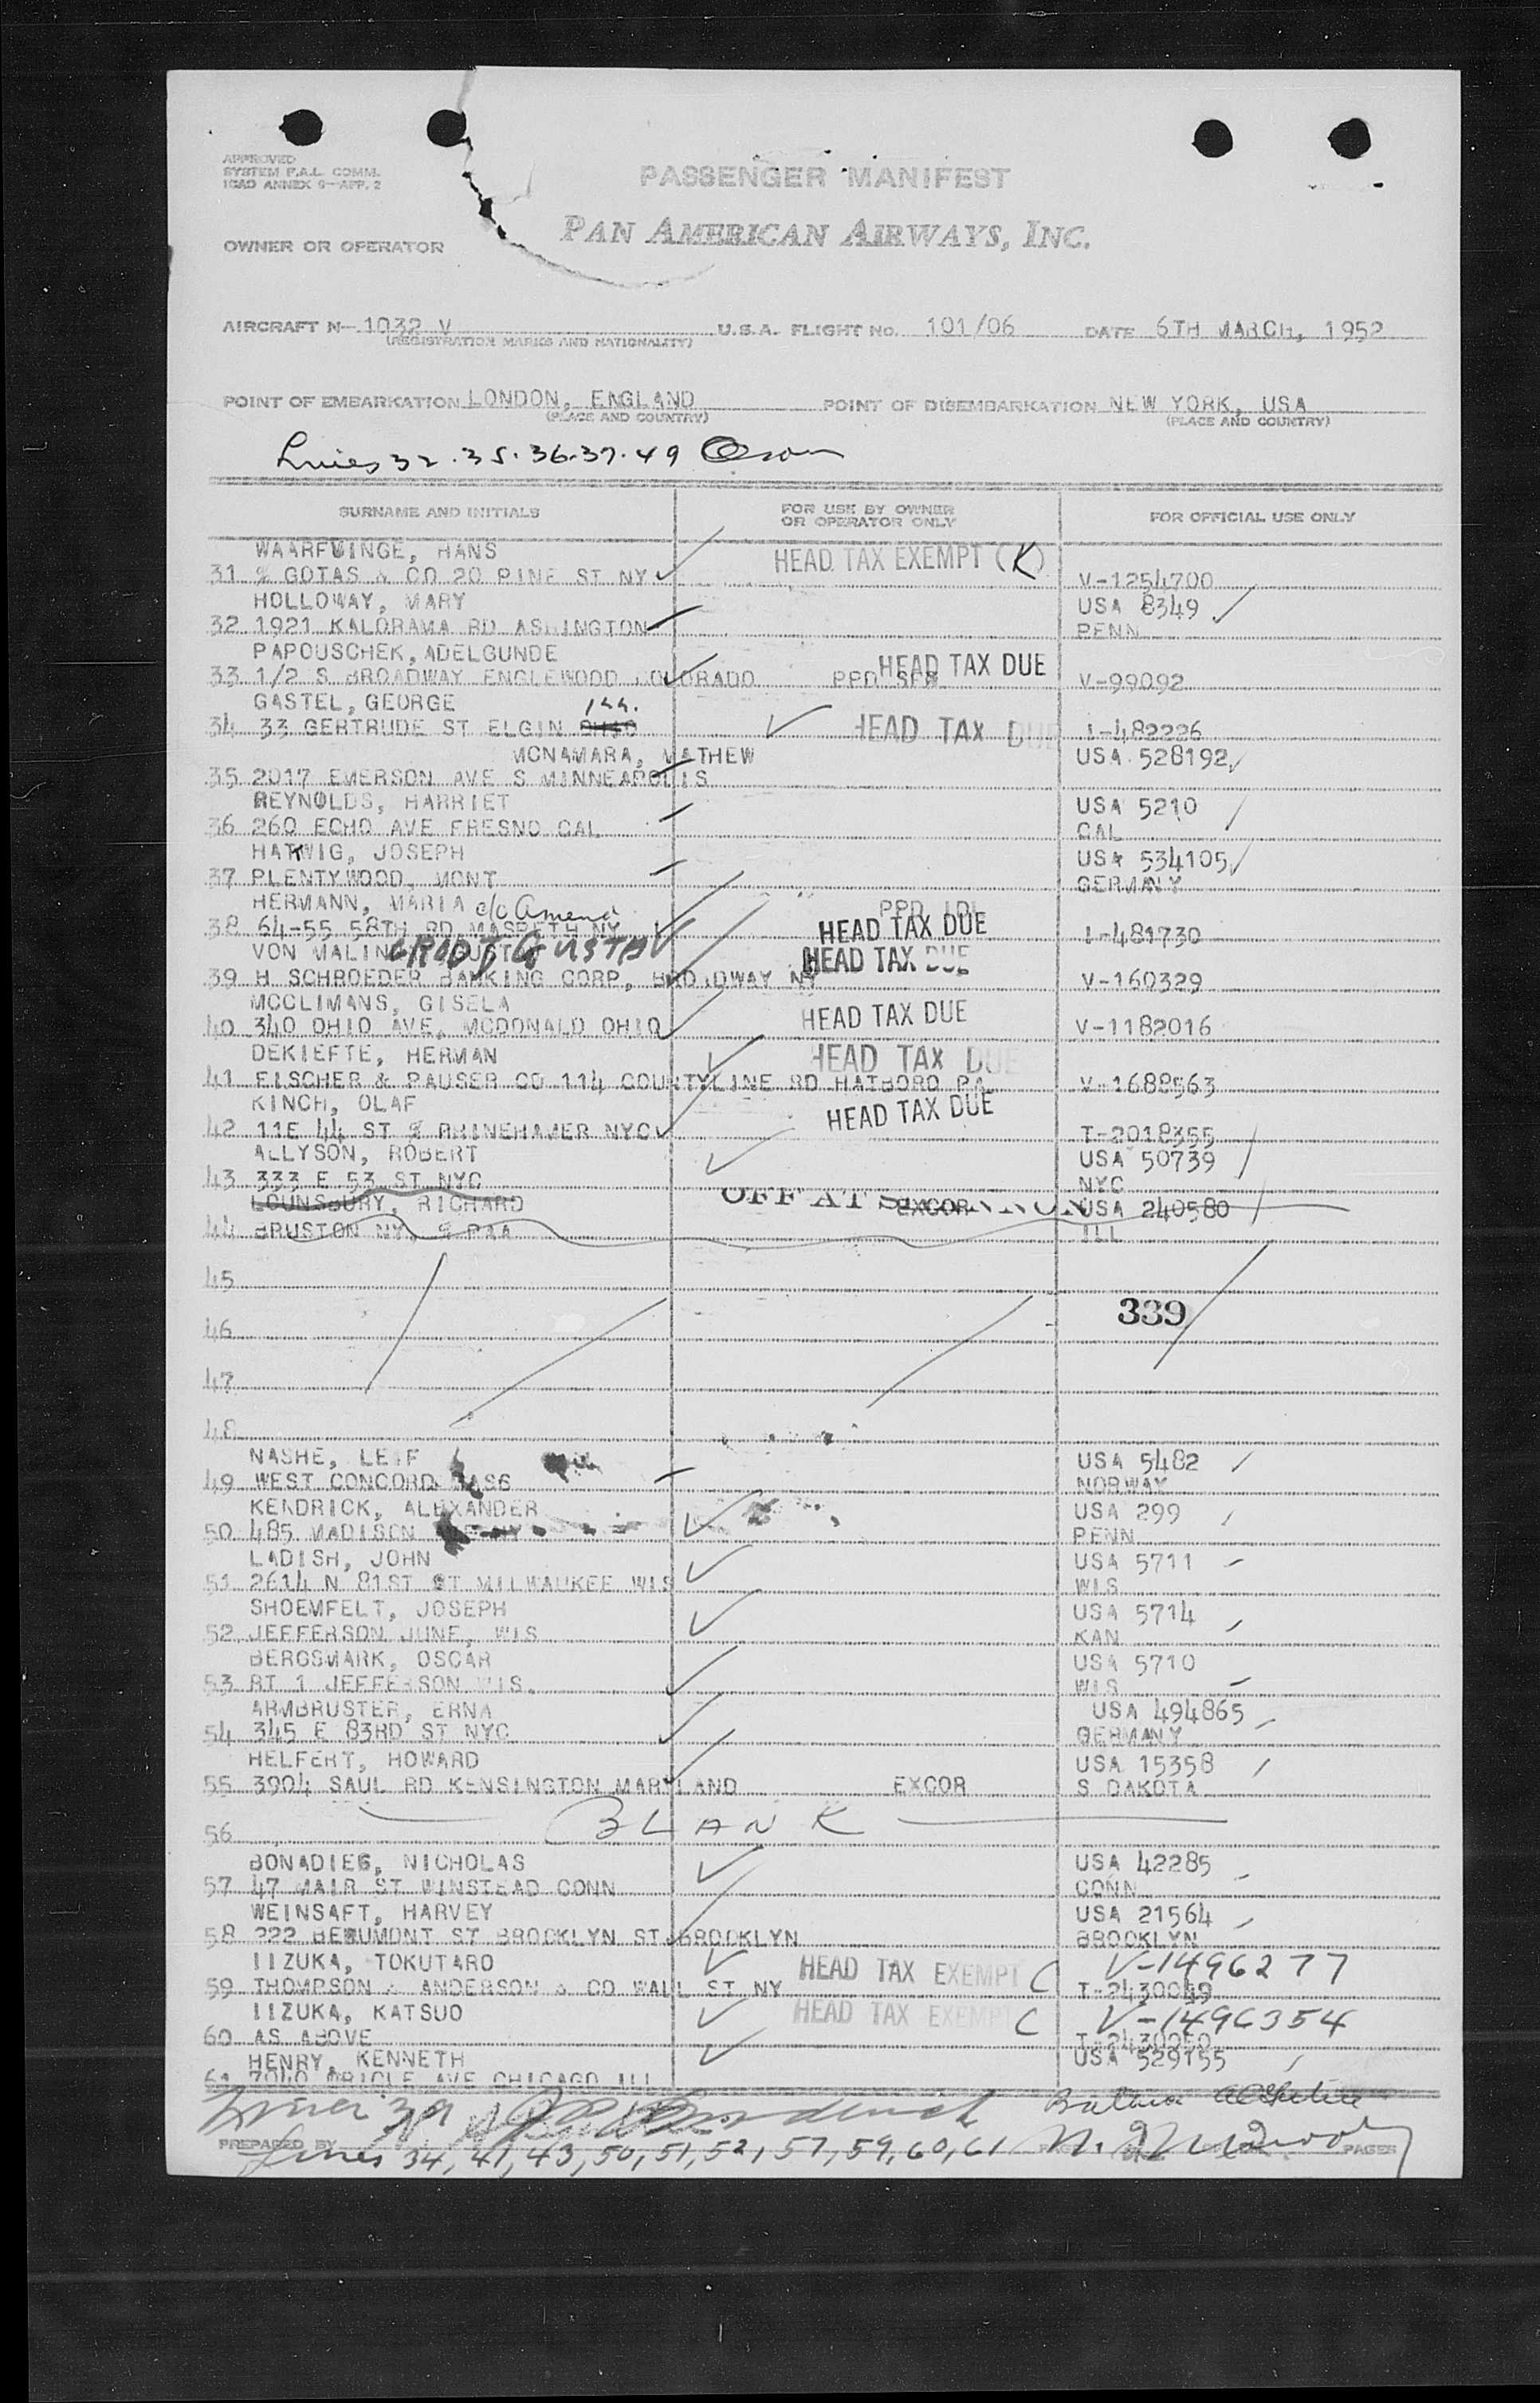 APPROVED
SYSTEM F.A.L. COMM.
ICAO ANNEX 9—APP. 2
PASSENGER MANIFEST
OWNER OR OPERATOR PAN AMERICAN AIRWAYS, INC.
AIRCRAFT N— 1032 V U.S.A. FLIGHT NO. 101/06 DATE 6TH MARCH, 1952
(REGISTRATION MARKS AND NATIONALITY)
POINT OF EMBARKATION LONDON, ENGLAND POINT OF DISEMBARKATION NEW YORK, USA
(PLACE AND COUNTRY) (PLACE AND COUNTRY)
Lines 32.35.36.37.49
SURNAME AND INITIALS FOR USE BY OWNER OR OPERATOR ONLY FOR OFFICIAL USE ONLY
WAARFWINGE, HANS HEAD TAX EXEMPT (K)
31 % GOTAS & CO 20 PINE ST NY V-1254700
HOLLOWAY, MARY USA 8349
32 1921 KALORAMA RD ASHINGTON PENN
PAPOUSCHEK, ADELGUNDE HEAD TAX DUE
33 1/2 S BROADWAY ENGLEWOOD COLORADO PPD V-99092
GASTEL, GEORGE
34 33 GERTRUDE ST ELGIN OHIO HEAD TAX DUE I-482226
MCNAMARA, MATHEW USA 528192
35 2017 EMERSON AVE S MINNEAPOLIS
REYNOLDS, HARRIET USA 5210
36 260 ECHO AVE FRESNO CAL CAL
HATWIG, JOSEPH USA 534105
37 PLENTYWOOD, MONT GERMANY
HERMANN, MARIA c/o Amend PPD IDL
38 64-55 58TH RD MASPETH NY HEAD TAX DUE I-481730
VON MALIN GRODT GUSTAV HEAD TAX DUE
39 H SCHROEDER BANKING CORP, BROADWAY NY V-160329
MCCLIMANS, GISELA
40 340 OHIO AVE, MCDONALD OHIO HEAD TAX DUE V-1182016
DEKIEFTE, HERMAN HEAD TAX DUE
41 FISCHER & PAUSER CO 114 COUNTYLINE RD HATBORO PA V-1688563
KINCH, OLAF HEAD TAX DUE
42 11E 44 ST % RHINEHAMER NYC T-2018355
ALLYSON, ROBERT USA 50739
43 333 E 53 ST NYC NYC
LOUNSBURY, RICHARD OFF AT SHANNON EXCOR USA 240580
44 BRUSTON NY, % PAA ILL
45
46 339
47
48
NASHE, LEIF USA 5482
49 WEST CONCORD MASS NORWAY
KENDRICK, ALEXANDER USA 299
50 485 MADISON PENN
LADISH, JOHN USA 5711
51 2614 N 81ST ST MILWAUKEE WIS WIS
SHOEMFELT, JOSEPH USA 5714
52 JEFFERSON JUNE, WIS KAN
BERGSMARK, OSCAR USA 5710
53 RT 1 JEFFERSON WIS. WIS
ARMBRUSTER, ERNA USA 494865
54 345 E 83RD ST NYC GERMANY
HELFERT, HOWARD USA 15358
55 3904 SAUL RD KENSINGTON MARYLAND EXCOR S DAKOTA
56 BLANK
BONADIES, NICHOLAS USA 42285
57 47 MAIR ST WINSTEAD CONN CONN
WEINSAFT, HARVEY USA 21564
58 222 BEAUMONT ST BROOKLYN ST BROOKLYN BROOKLYN
IIZUKA, TOKUTARO HEAD TAX EXEMPT C V-1496277
59 THOMPSON & ANDERSON & CO WALL ST NY T-2430049
IIZUKA, KATSUO HEAD TAX EXEMPT C V-1496354
60 AS ABOVE T-2430050
HENRY, KENNETH USA 529155
61 AVE CHICAGO ILL
PREPARED BY PAGES
Lines 34, 41, 43, 50, 51, 52, 57, 59, 60, 61